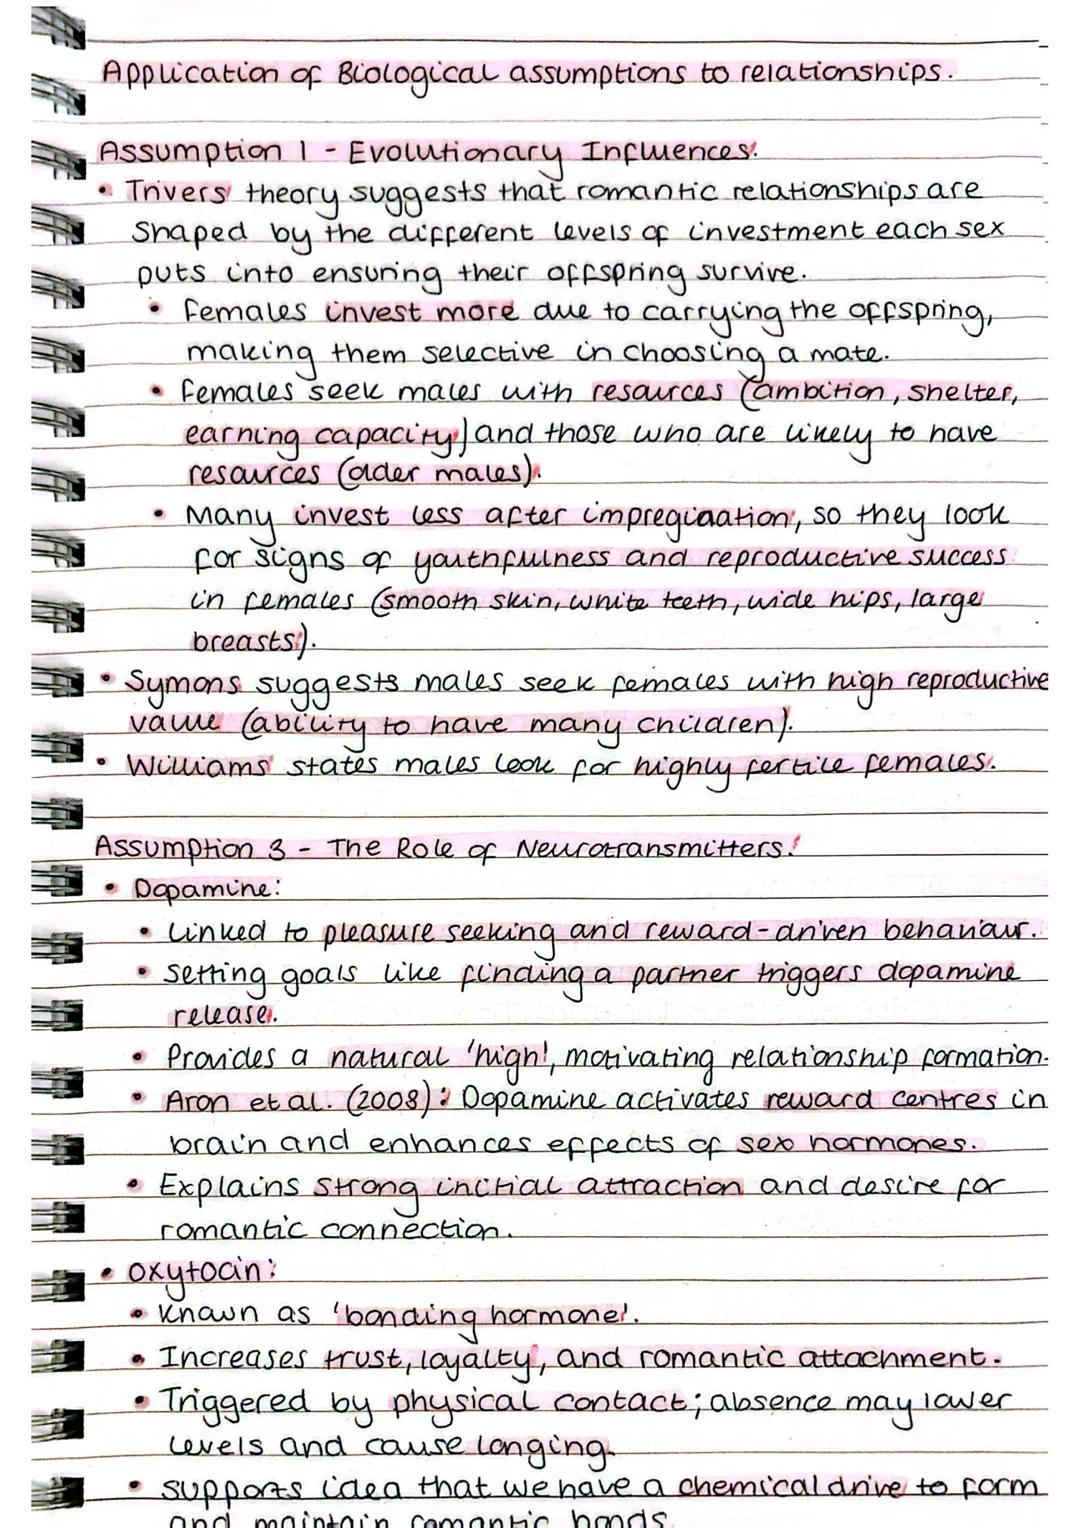 Application of Biological assumptions to relationships.
Assumption 1 - Evolutionary Influences.
• Trivers theory suggests that romantic relationships are
shaped by the different levels of investment each sex
puts into ensuring their offspring survive.
• females invest more due to carrying the offspring,
making them selective in choosing a mate.
• females seek males with resources (ambition, shelter,
earning capacity) and those who are likely to have
resources (older males).
• Many invest less after impregiaation, so they look
for signs of youthfulness and reproductive success
in females (smooth skin, white teeth, wide hips, large
breasts).
• Symons suggests males seek females with high reproductive
value (ability to have many children).
• Williams states males look for highly fertile females.
Assumption 3 - The Role of Neurotransmitters.
• Dopamine:
• Linked to pleasure seeking and reward-driven behaviour.
• setting goals like finding a partner triggers dopamine
release.
• Provides a natural 'high', motivating relationship formation.
• Aron et al. (2008): Dopamine activates reward centres in
brain and enhances effects of sex hormones.
• Explains strong initial attraction and desire for
romantic connection.
• oxytocin:
• Known as 'bonding hormone'.
• Increases trust, loyalty, and romantic attachment.
• Triggered by physical contact; absence may lower
levels and cause longing.
• supports idea that we have a chemical drive to form
and maintain romantic bonds.